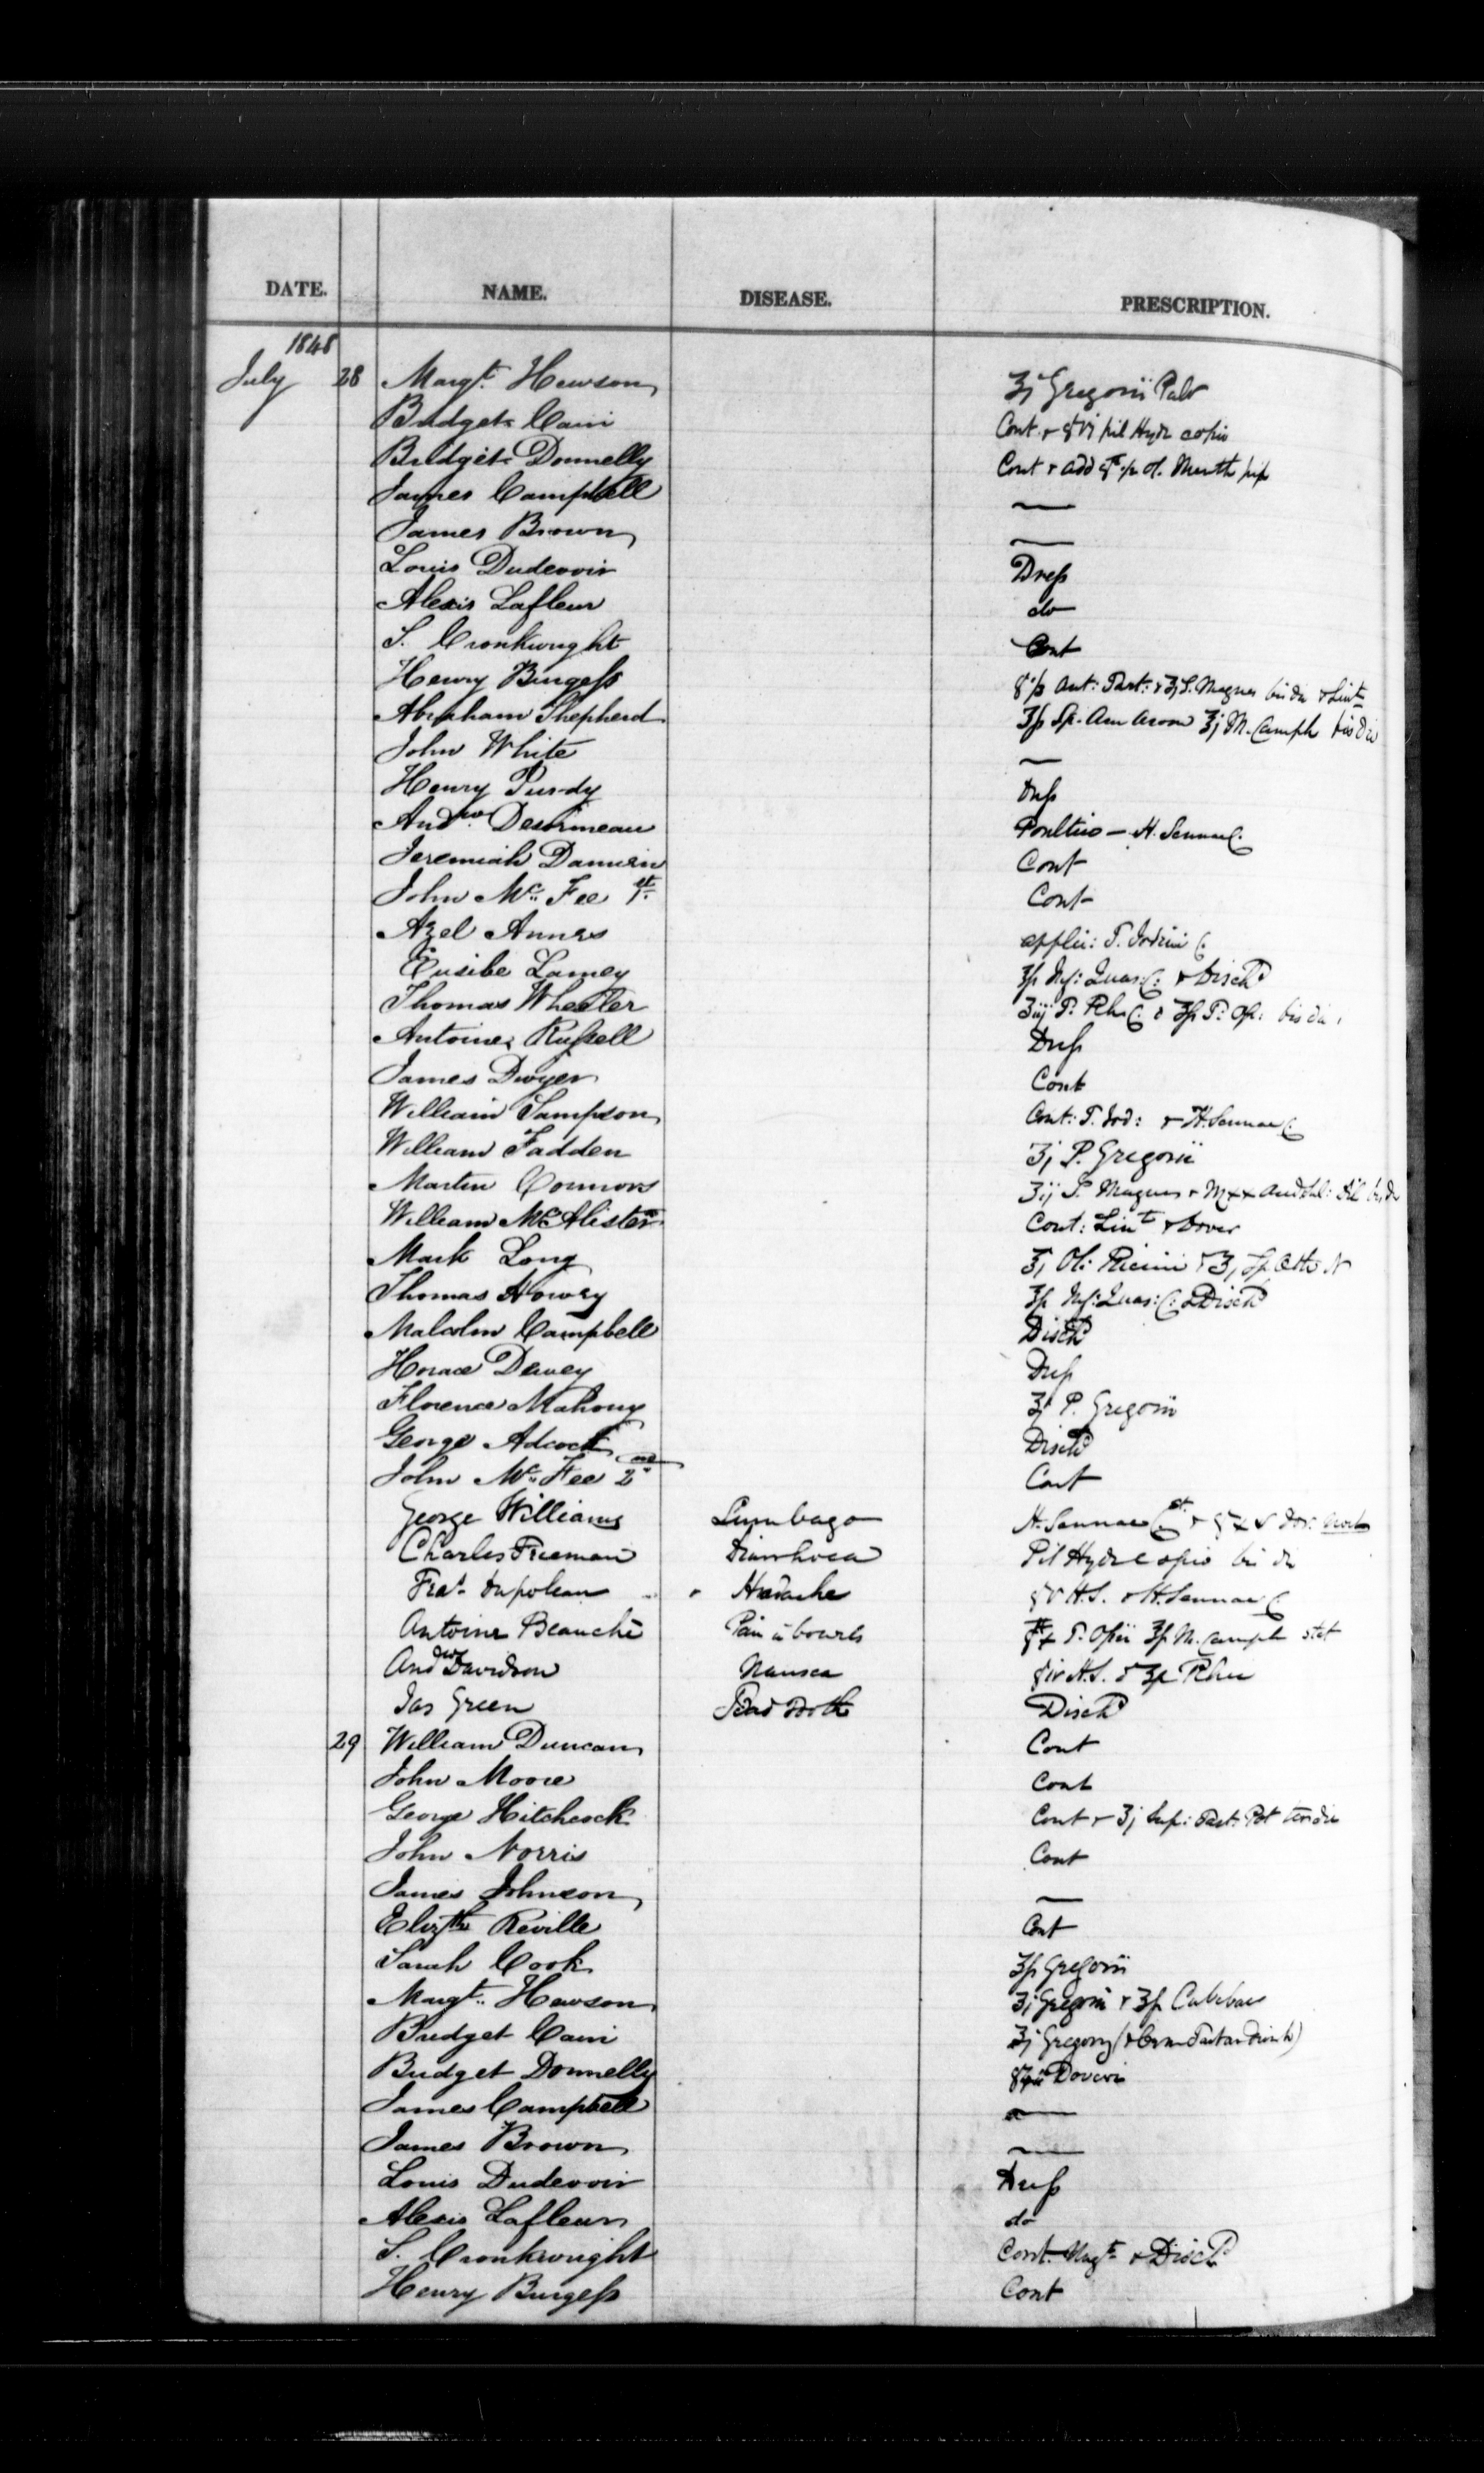 DATE. NAME. DISEASE. PRESCRIPTION.
1848
July 28 Margt. Hewson ʒj Gregorii Pulv
Bridget Cain Cont + gr vj pil Hydr
Bridget Donnelly Cont + add ol. Menth pip
James Campbell —
James Brown —
Louis Dudevoir Dress
Alexis Lafleur do
S. Cronkwright Cont
Henry Burgess Ant: Tart: + ʒj S. Magnes bis die + Lint
Abraham Shepherd Sp. Am Arom ʒj M. Camph bis die
John White —
Henry Purdy Dress
Andw. Desormeau Poultice — H. Sennae C.
Jeremiah Damien Cont
John Mc. Fee 1st. Cont
Azel Annes applic: T. Iodini C.
Eusibe Lamey Inf: Quas: C: + Disch
Thomas Wheeler ʒiij T. Rh. C. T. Op: bis die
Antoine Russell Dress
James Dwyer Cont
William Sampson Cont: T. Iod: + H. Sennae C
William Fadden ʒj P. Gregorii
Martin Connors ʒij S. Magnes + Mxx Dil bis die
William McAlister Cont: Lint + Dover
Mark Long ʒj Ol: Ricini + ʒj Sp. Aeth N
Thomas Howey Inf: Quas: C: & Disch
Malcolm Campbell Disch
Horace Dewey Dress
Florence Mahony ʒj P. Gregorii
George Adcock Disch
John Mc. Fee 2nd Cont
George Williams Lumbago H. Sennae C. st. + gr x Dov: noct
Charles Freeman Diarrhoea Pil Hydr c opio bis die
Fras. Napolean Headache gr v H.S. + H. Sennae C
Antoine Beauche Pain in bowels T. Opii M. Camph stat
Andw Davidson Nausea gr iv H.S. Rhei
Jas Green Bad Tooth Disch
29 William Duncan Cont
John Moore Cont
George Hitchcock Cont + ʒj Sup: Tart. Pot ter die
John Norris Cont
James Johnson —
Elizth Reville Cont
Sarah Cook Gregorii
Margt. Hewson ʒj Gregorii + Cubebae
Bridget Cain ʒj Gregory (+ Crem Tartar drink)
Bridget Donnelly Doveri
James Campbell —
James Brown —
Louis Dudevoir Dress
Alexis Lafleur do
S. Cronkwright Cont. Ungt. + Disch
Henry Burgess Cont